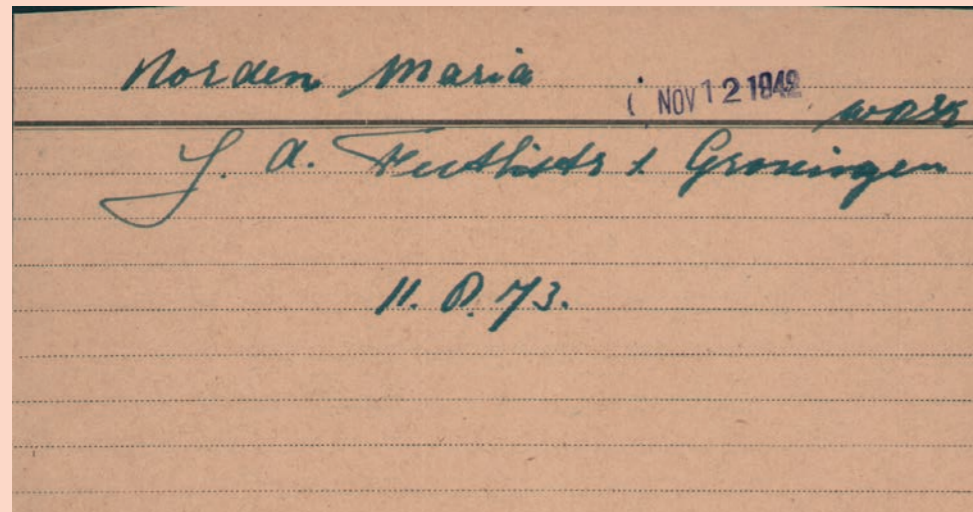 Norden Maria
NOV 12 1942
J. A. Groningen
11. P. 73.